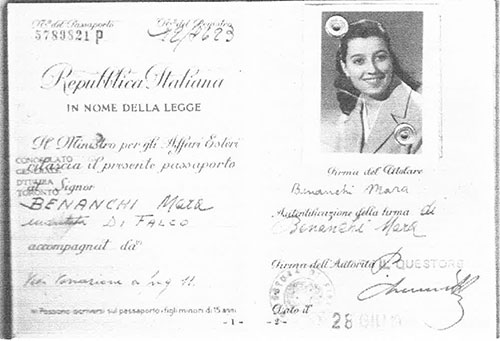 N.º del Passaporto
5789821 P
N.º del Registro
12/4623
Repubblica Italiana
IN NOME DELLA LEGGE
Il Ministro per gli Affari Esteri
rilascia il presente passaporto
CONSOLATO
GENERALE
D'ITALIA
TORONTO
al Signor
BENANCHI Mara
DI FALCO
accompagnat da
Possono iscriversi sul passaporto i figli minori di 15 anni
- 1 -
Firma del Titolare
Benanchi Mara
Autentificazione della firma di
Benanchi Mara
Firma dell'Autorità IL QUESTORE
Dato il
28
- 2 -